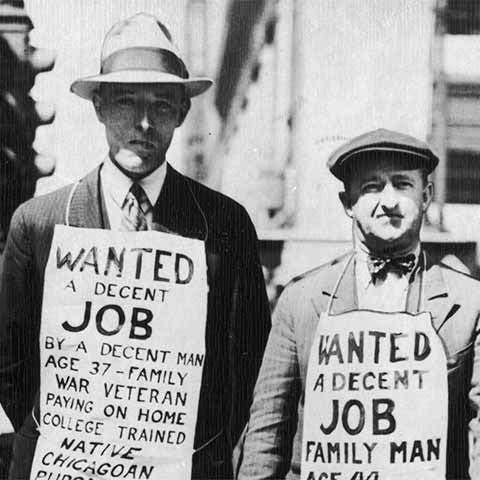 WANTED
A DECENT
JOB
BY A DECENT MAN
AGE 37-FAMILY
WAR VETERAN
PAYING ON HOME
COLLEGE TRAINED
NATIVE
CHICAGOAN
WANTED
A DECENT
JOB
FAMILY MAN
AGE 44